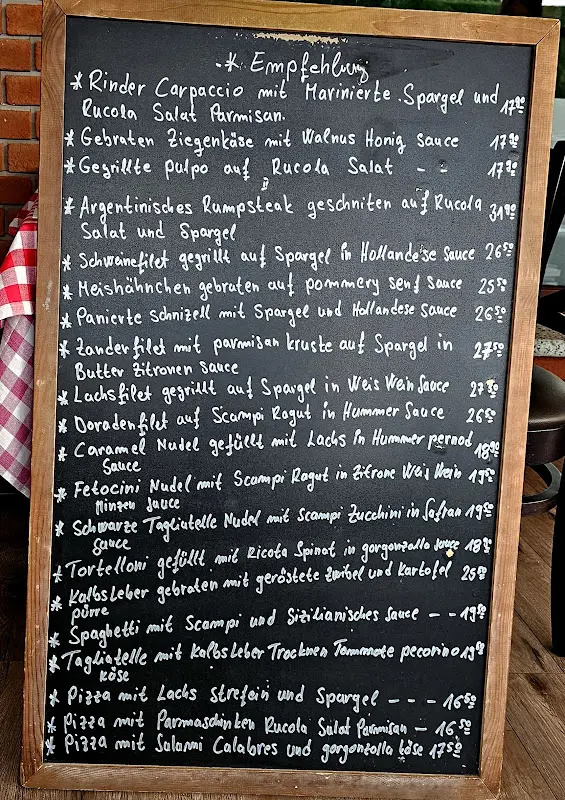 * Empfehlung
* Rinder Carpaccio mit Marinierte Spargel und 17.90
Rucola Salat Parmisan.
* Gebraten Ziegenkäse mit Walnus Honig Sauce 17.90
* Gegrillte pulpo auf Rucola Salat - - 17.90
* Argentinisches Rumpsteak geschniten auf Rucola 31.90
Salat und Spargel
* Schweinefilet gegrillt auf Spargel in Hollandese Sauce 26.50
* Meishähnchen gebraten auf pommery senf Sauce 25.50
* Panierte schnizell mit Spargel und Hollandese Sauce 26.50
* Zanderfilet mit parmisan kruste auf Spargel in 27.50
Butter Zitronen Sauce
* Lachsfilet gegrillt auf Spargel in Weis Wein Sauce 27.50
* Doradenfilet auf Scampi Ragut in Hummer Sauce 26.50
* Caramel Nudel gefüllt mit Lachs in Hummer pernod 18.90
Sauce
* Fetocini Nudel mit Scampi Ragut in Zitrone Weis Wein 19.50
Minzen Sauce
* Schwarze Tagliatelle Nudel mit Scampi Zucchini in Safran 19.50
Sauce
* Tortelloni gefüllt mit Ricota Spinat in gorgonzolla sauce 18.50
* Kalbsleber gebraten mit geröstete zwibel und Kartofel 25.50
pürre
* Spaghetti mit Scampi und Sizilianisches Sauce - - 19.50
* Tagliatelle mit Kalbsleber Trocknen Tommate pecorino 19.50
käse
* Pizza mit Lachs Strefein und Spargel - - - 16.50
* Pizza mit Parmaschinken Rucola Salat Parmisan - 16.50
* Pizza mit Salammi Calabres und gorgonzolla käse 17.50